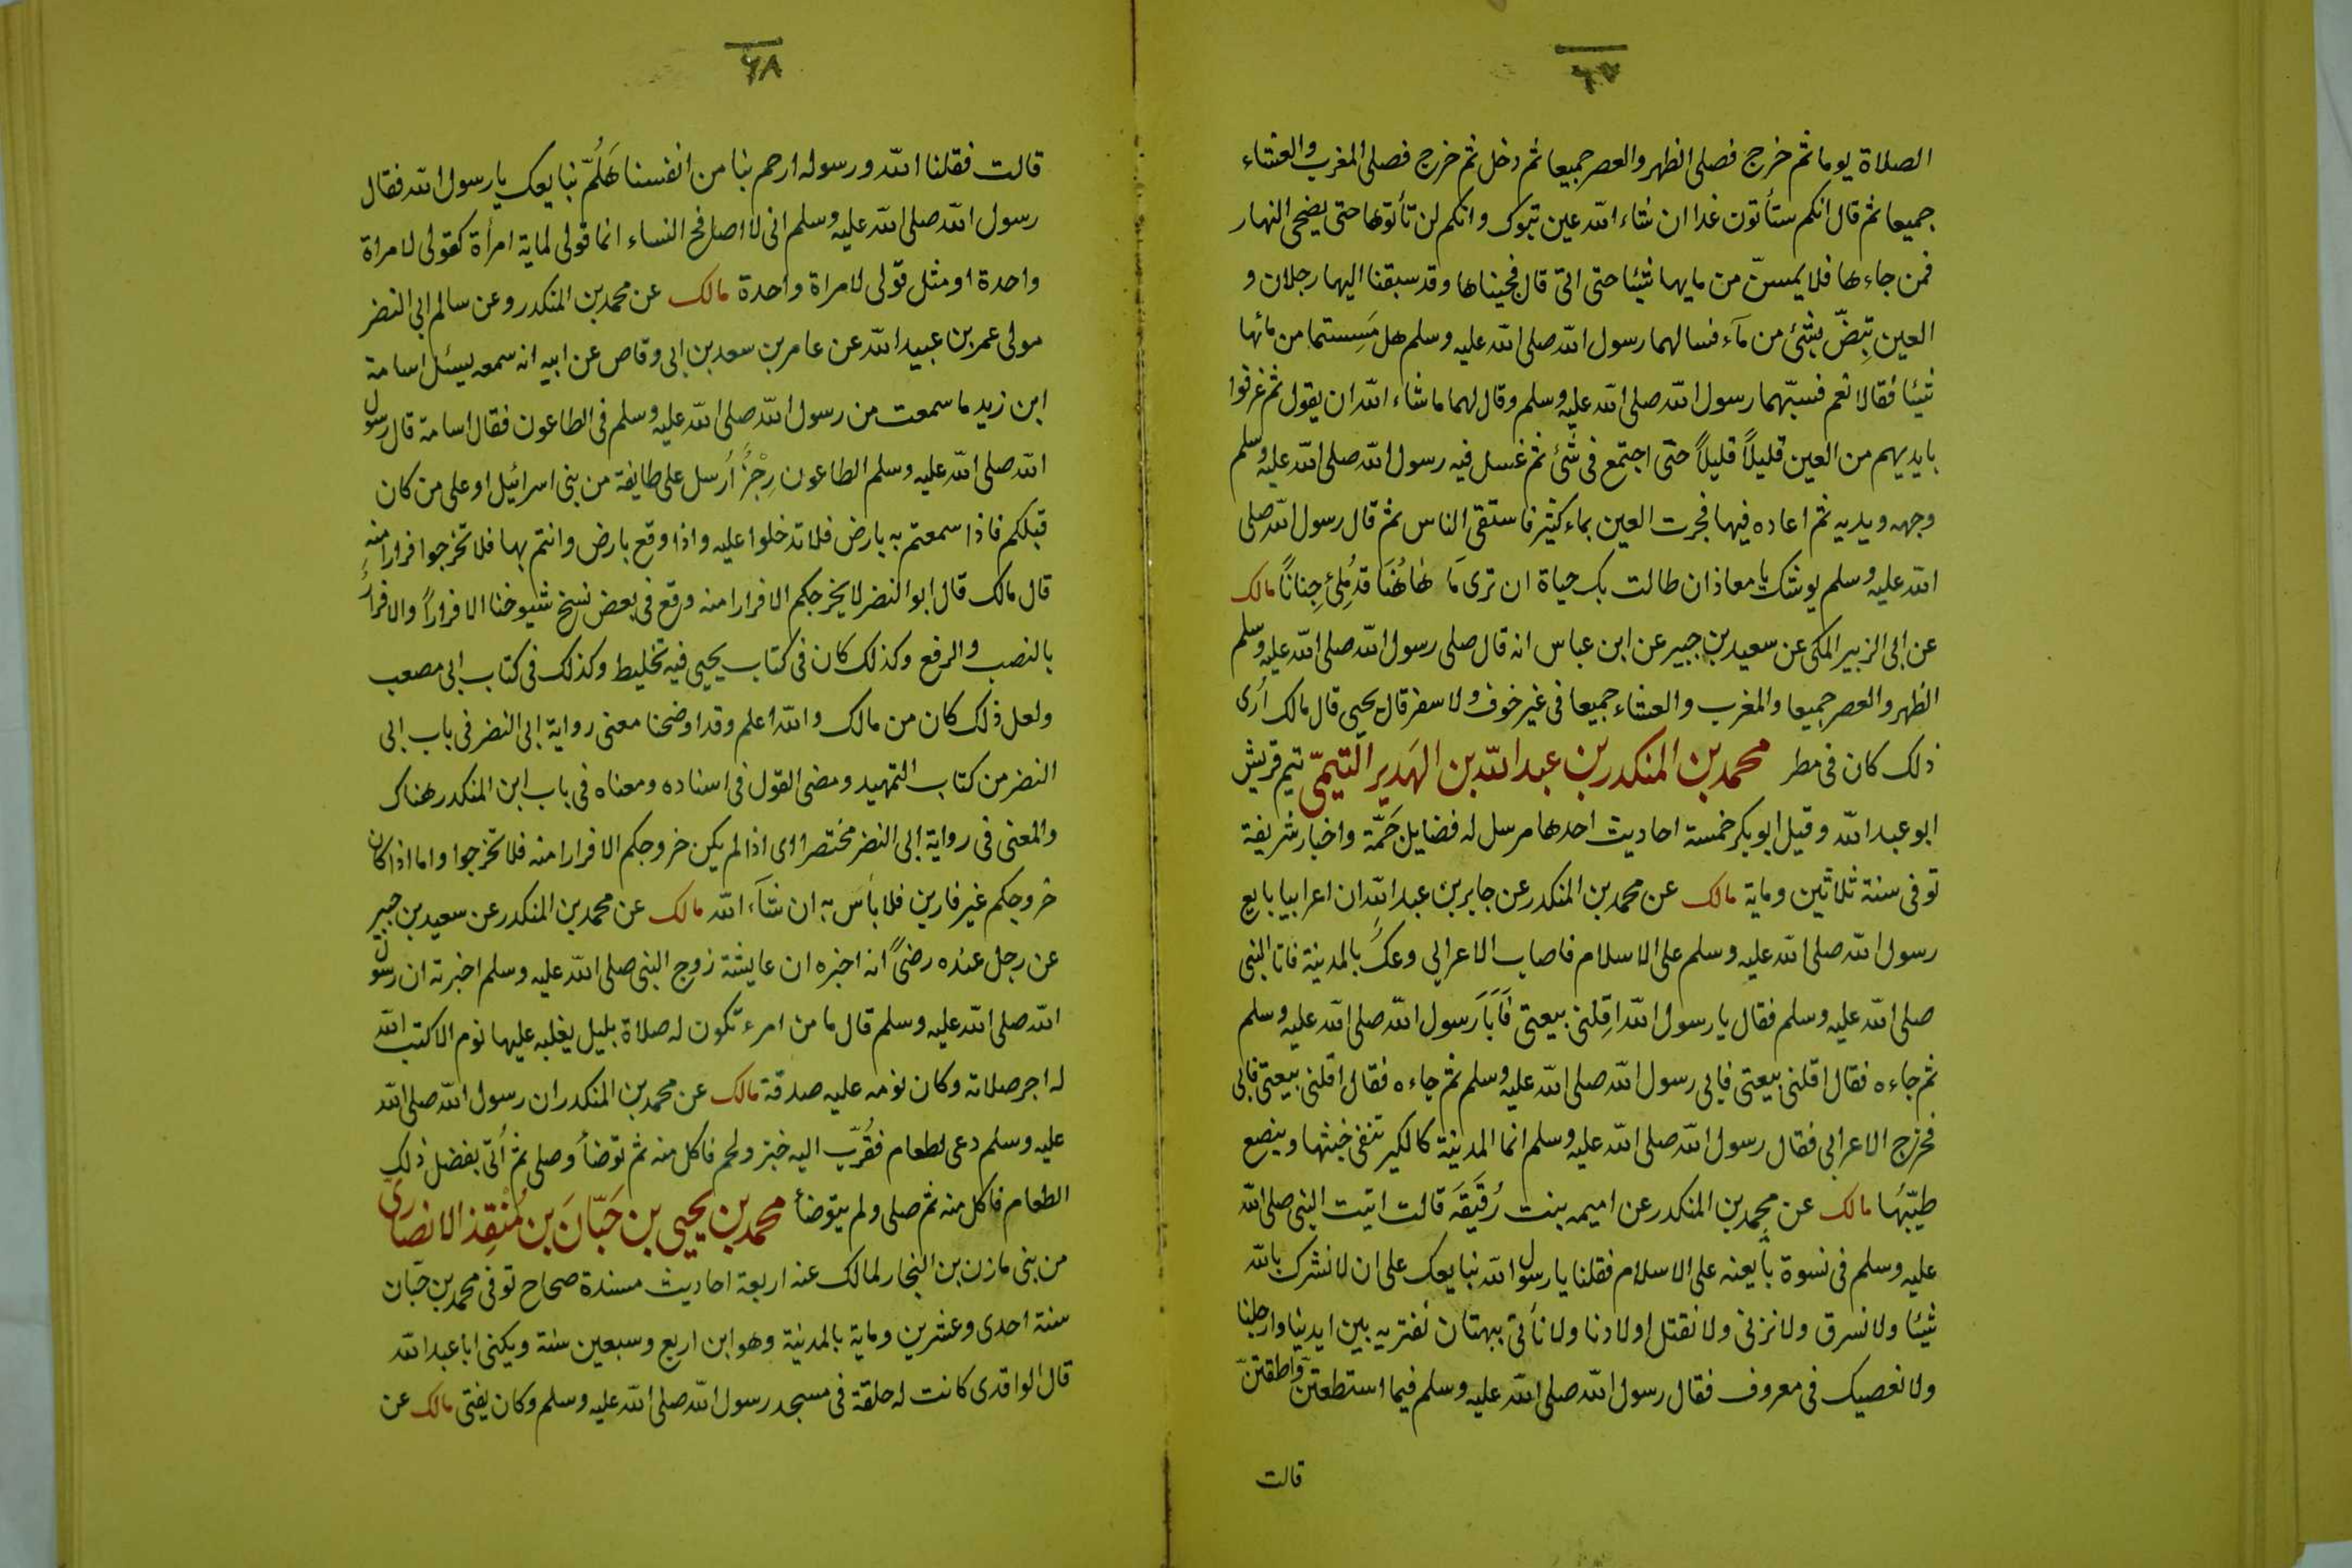 ٦٧
الصلاة يوما ثم خرج فصلى الظهر والعصر جميعا ثم دخل ثم خرج فصلى المغرب والعشاء
جميعا ثم قال انكم ستأتون غدا ان شاء الله عين تبوك وانكم لن تأتوها حتى يضحى النهار
فمن جاءها فلا يمسنّ من مايها شيئا حتى اتى قال فجيناها وقد سبقنا اليها رجلان و
العين تبِضّ بشئ من مآء فسالهما رسول الله صلى الله عليه وسلم هل مَسِستما من مائها
شيئا فقالا نعم فسبّهما رسول الله صلى الله عليه وسلم وقال لهما ما شاء الله ان يقول ثم غرفوا
بايديهم من العين قليلاً قليلاً حتى اجتمع فى شئ ثم غسل فيه رسول الله صلى الله عليه وسلم
وجهه ويديه ثم اعاده فيها فجرت العين بماء كثير فاستقى الناس ثم قال رسول الله صلى
الله عليه وسلم يوشك يا معاذ ان طالت بك حياة ان ترى مَا هٰاهُنَا قد مُلِئ جِنانًا مالك
عن ابى الزبير المكى عن سعيد بن جبير عن ابن عباس انه قال صلى رسول الله صلى الله عليه وسلم
الظهر والعصر جميعا والمغرب والعشاء جميعا فى غير خوف ولا سفر قال يحيى قال مالك أرى
ذلك كان فى مطر محمد بن المنكدر بن عبد الله بن الهَدير التيمىّ تيم قريش
ابو عبد الله وقيل ابو بكر خمسة احاديث احدها مرسل له فضايل جَمَّة واخبار شريفة
توفى سنة ثلاثين وماية مالك عن محمد بن المنكدر عن جابر بن عبد الله ان اعرابيا بايع
رسول الله صلى الله عليه وسلم على الاسلام فاصاب الاعرابى وعكٌ بالمدينة فاتا النبى
صلى الله عليه وسلم فقال يا رسول الله اقِلنى بيعتى فَابَا رَسول الله صلى الله عليه وسلم
ثم جاءه فقال اقلنى بيعتى فابى رسول الله صلى الله عليه وسلم ثم جاءه فقال اقلنى بيعتى فابى
فخرج الاعرابى فقال رسول الله صلى الله عليه وسلم انما المدينة كالكير تنفى خبثها وينصع
طيّبَها مالك عن محمد بن المنكدر عن اميمه بنت رُقَيقَة قالت اتيت النبى صلى الله
عليه وسلم فى نسوة بايعنه على الاسلام فقلنا يا رسول الله نبايعك على ان لا نشرك بالله
شيئا ولا نسرق ولا نزنى ولا نقتل اولادنا ولا نأتى ببهتان نفتريه بين ايدينا وارجلنا
ولا نعصيك فى معروف فقال رسول الله صلى الله عليه وسلم فيما استطعتنّ واطقتنّ
قالت
٦٨
قالت فقلنا الله ورسوله ارحم بنا من انفسنا هَلُمّ نبايعك يا رسول الله فقال
رسول الله صلى الله عليه وسلم انى لا اصافح النساء انما قولى لماية امرأة كقولى لامراة
واحدة او مثل قولى لامراة واحدة مالك عن محمد بن المنكدر وعن سالم ابى النضر
مولى عمر بن عبيد الله عن عامر بن سعد بن ابى وقاص عن ابيه انه سمعه يسئل اسامة
ابن زيد ما سمعت من رسول الله صلى الله عليه وسلم فى الطاعون فقال اسامة قال رسول
الله صلى الله عليه وسلم الطاعون رِجْزٌ أرسل على طايفة من بنى اسرائيل او على من كان
قبلكم فاذا سمعتم به بارض فلا تدخلوا عليه واذا وقع بارض وانتم بها فلا تخرجوا فرارا منه
قال مالك قال ابو النضر لا يخرجكم الا فرارا منه وقع فى بعض نسخ شيوخنا الا فراراً والا فرارُ
بالنصب والرفع وكذلك كان فى كتاب يحيى فيه تخليط وكذلك فى كتاب ابى مصعب
ولعل ذلك كان من مالك والله اعلم وقد اوضحنا معنى رواية ابى النضر فى باب ابى
النضر من كتاب التمهيد ومضى القول فى اسناده ومعناه فى باب ابن المنكدر هناك
والمعنى فى رواية ابى النضر مختصرا اى اذا لم يكن خروجكم الا فرارا منه فلا تخرجوا واما اذا كان
خروجكم غير فارين فلا بأس به ان شآء الله مالك عن محمد بن المنكدر عن سعيد بن جبير
عن رجل عنده رضىً انه اخبره ان عايشة زوج النبى صلى الله عليه وسلم اخبرته ان رسول
الله صلى الله عليه وسلم قال ما من امرء تكون له صلاة بليل يغلبه عليها نوم الا كتب الله
له اجر صلاته وكان نومه عليه صدقة مالك عن محمد بن المنكدر ان رسول الله صلى الله
عليه وسلم دعى لطعام فقُرّب اليه خبز ولحم فاكل منه ثم توضأ وصلى ثم أتى بفضل ذلك
الطعام فاكل منه ثم صلى ولم يتوضأ محمد بن يحيى بن حَبّانَ بن مُنْقِذ الانصارى
من بنى مازن بن النجار لمالك عنه اربعة احاديث مسندة صحاح توفى محمد بن حبّان
سنة احدى وعشرين وماية بالمدينة وهو ابن اربع وسبعين سنة ويكنى ابا عبد الله
قال الواقدى كانت له حلقة فى مسجد رسول الله صلى الله عليه وسلم وكان يفتى مالك عن